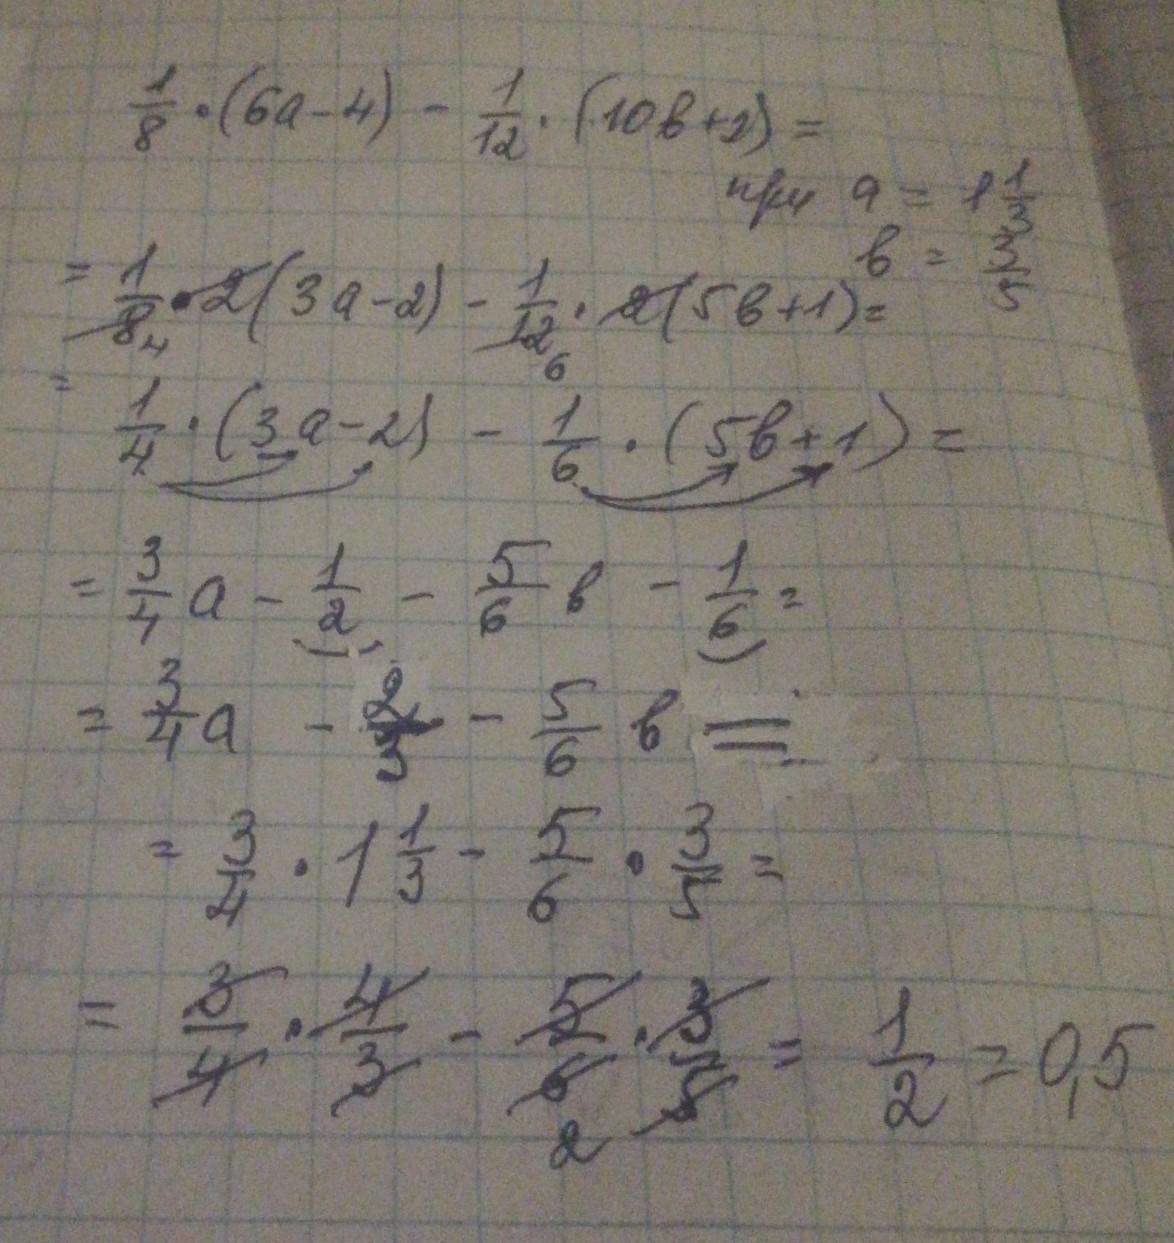 1/8 · (6a - 4) - 1/12 · (10b + 2) =
при a = 1 1/3
b = 3/5
= 1/8 4 · 2(3a - 2) - 1/12 6 · 2(5b + 1) =
= 1/4 · (3a - 2) - 1/6 · (5b + 1) =
= 3/4 a - 1/2 - 5/6 b - 1/6 =
= 3/4 a - 2/3 - 5/6 b =
= 3/4 · 1 1/3 - 5/6 · 3/5 =
= 3/4 · 4/3 - 5/6 2 · 3/5 = 1/2 = 0,5